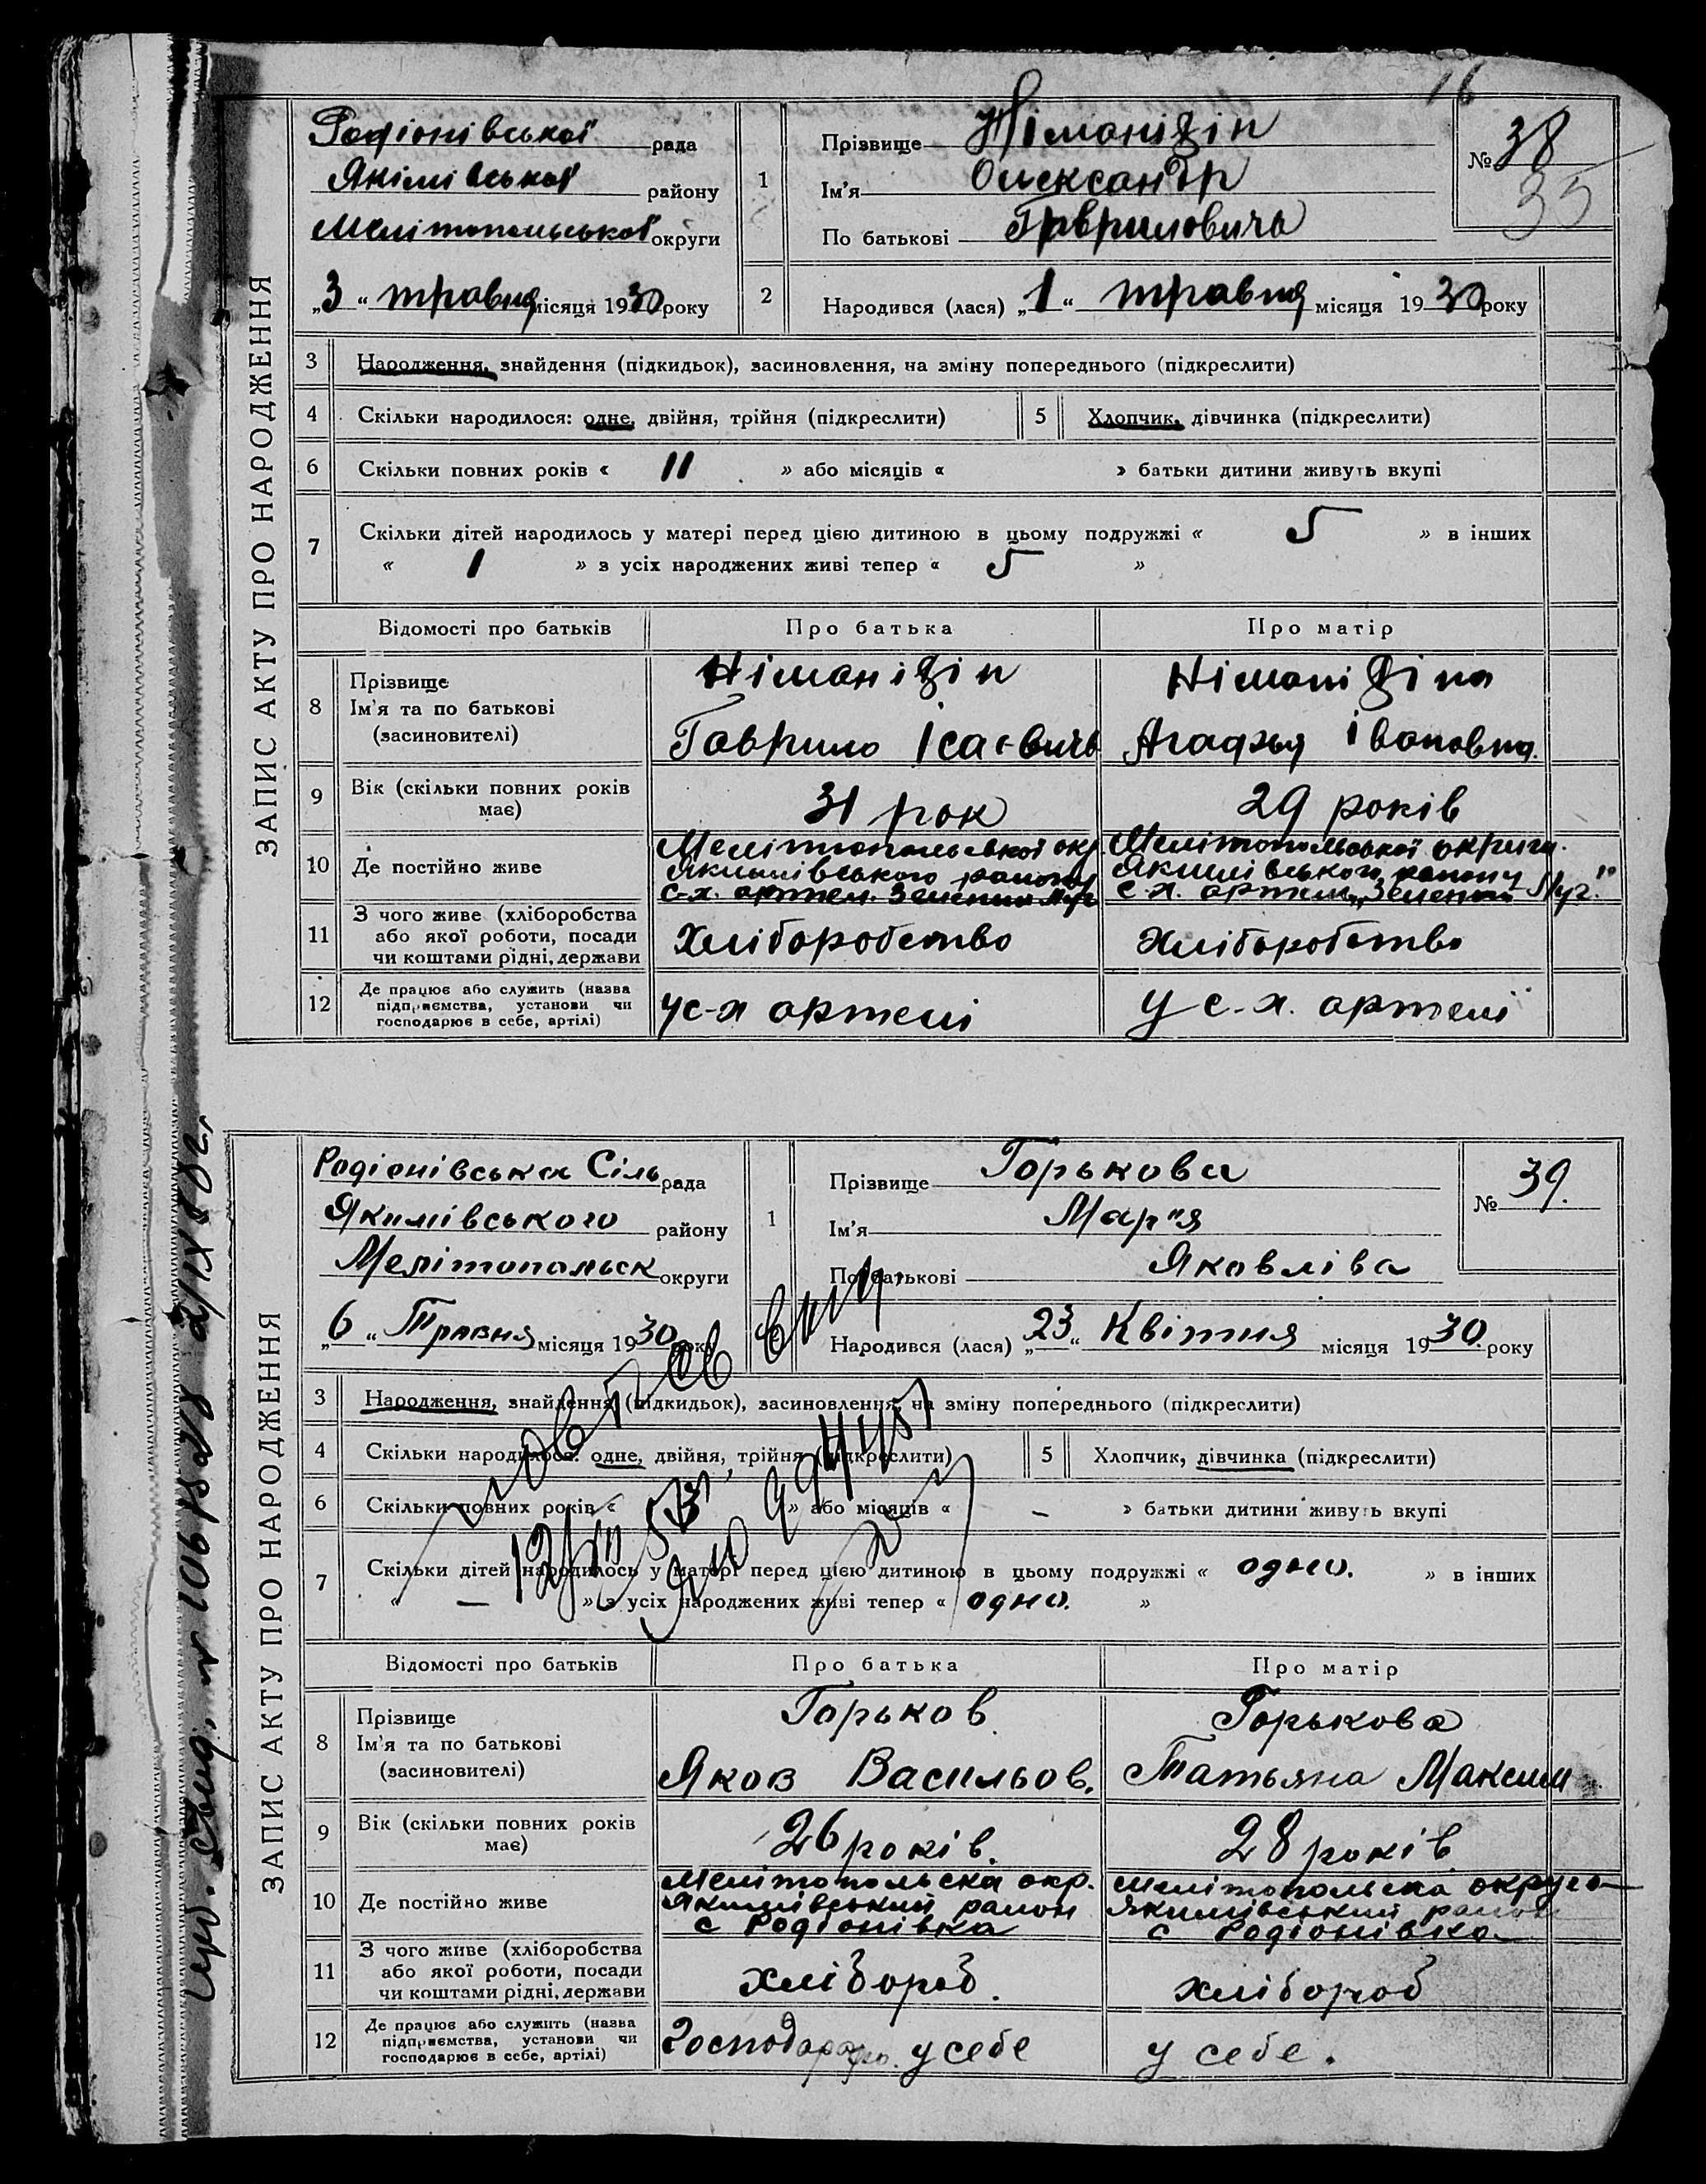 16
ЗАПИС АКТУ ПРО НАРОДЖЕННЯ
Родіонівської рада
Якимівської району
Мелітопольської округи
„3“ травня місяця 1930 року
1
Прізвище Німанідзін
Ім'я Олександр
По батькові Гаврилович
№ 38
35
2 Народився (лася) „1“ травня місяця 1930 року
3 Народження, знайдення (підкидьок), засиновлення, на зміну попереднього (підкреслити)
4 Скільки народилося: одне, двійня, трійня (підкреслити) 5 Хлопчик, дівчинка (підкреслити)
6 Скільки повних років « 11 » або місяців « » батьки дитини живуть вкупі
7 Скільки дітей народилось у матері перед цією дитиною в цьому подружжі « 5 » в інших
« 1 » з усіх народжених живі тепер « 5 »
Відомості про батьків Про батька Про матір
8 Прізвище
Ім'я та по батькові
(засиновителі)
Гаврило Ісаєвичь Агафья Івановна.
9 Вік (скільки повних років має) 31 рок 29 років
10 Де постійно живе
Мелітопольської окр. Мелітопольської округи.
Якимівського району Якимівського району
с-х. артел. Зелений Луг с. х. артель „Зелений Луг."
11 З чого живе (хліборобства
або якої роботи, посади
чи коштами рідні, держави
Хліборобство Хліборобство
12 Де працює або служить (назва
підприємства, установи чи
господарює в себе, артілі)
у с-х артелі у с.-х. артелі
ЗАПИС АКТУ ПРО НАРОДЖЕННЯ
Родіонівська Сіль рада
Якимівського району
Мелітопольск округи
„6“ Травня місяця 1930 року
1
Прізвище Горькова
Ім'я Мар"я
По батькові Яковліва
№ 39.
Народився (лася) „23“ Квітня місяця 1930. року
3 Народження, знайдення (підкидьок), засиновлення, на зміну попереднього (підкреслити)
4 Скільки народилося: одне, двійня, трійня (підкреслити) 5 Хлопчик, дівчинка (підкреслити)
6 Скільки повних років « » або місяців « – » батьки дитини живуть вкупі
7 Скільки дітей народилось у матері перед цією дитиною в цьому подружжі « одно. » в інших
« – » з усіх народжених живі тепер « одно. »
Відомості про батьків Про батька Про матір
8 Прізвище
Ім'я та по батькові
(засиновителі)
Горьков Горькова
Яков Васильов. Татьяна Максим
9 Вік (скільки повних років має) 26 років. 28 років
10 Де постійно живе
Мелітопольска окр. Мелітопольска округа
Якимівський район Якимівський район
с Родіонівка с Родіонівка
11 З чого живе (хліборобства
або якої роботи, посади
чи коштами рідні, держави
хлібороб. хлібороб
12 Де працює або служить (назва
підприємства, установи чи
господарює в себе, артілі)
у себе у себе.